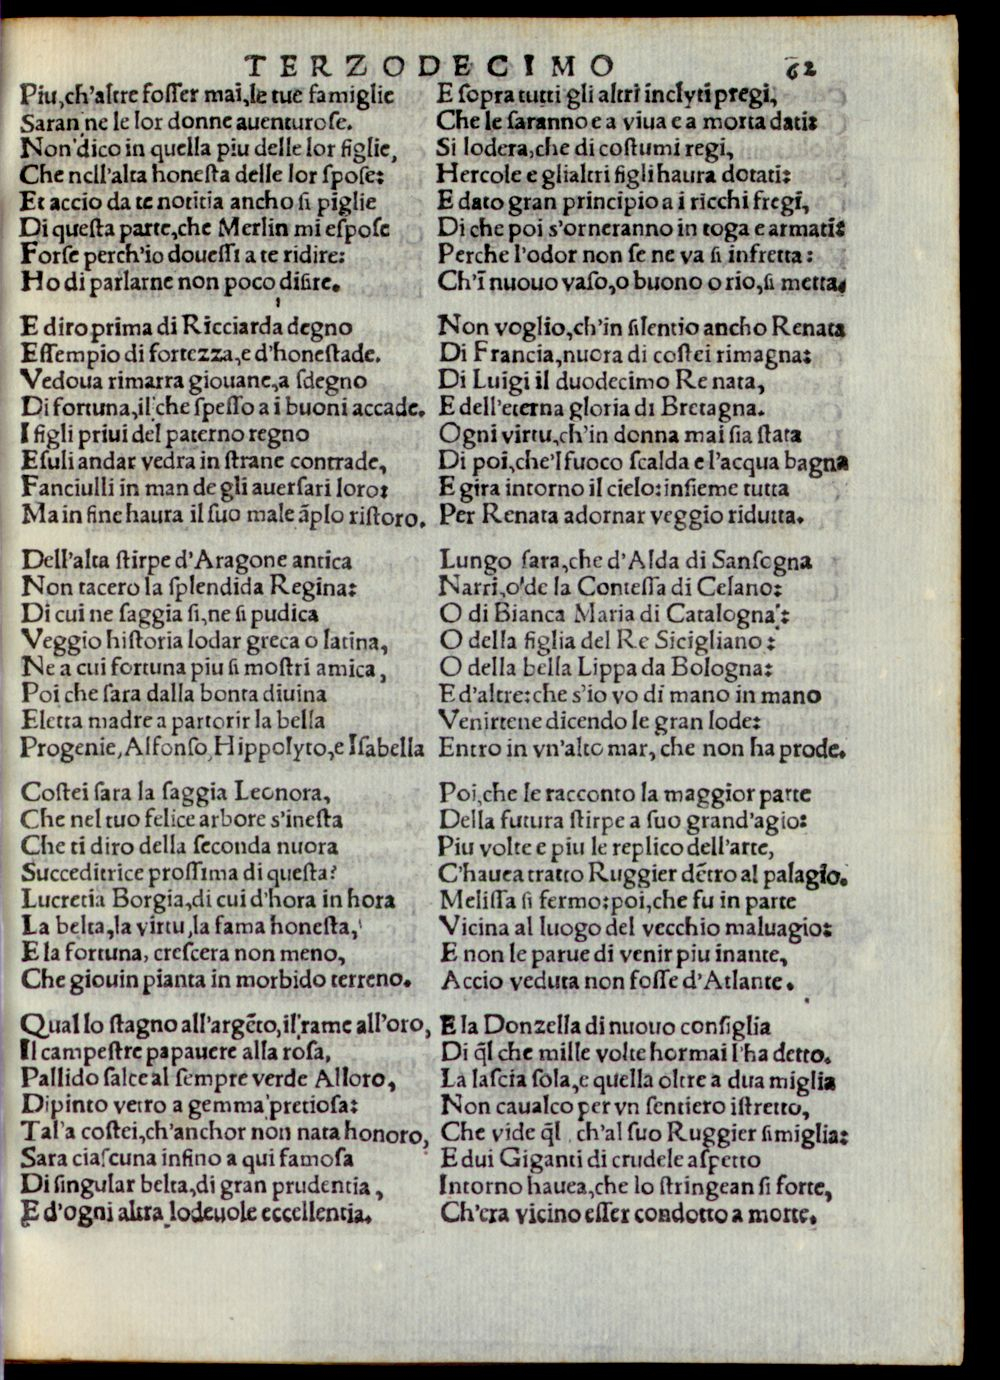 TERZODECIMO 62
Piu, ch'altre fosser mai, le tue famiglie
Saran ne le lor donne auenturose.
Non dico in quella piu delle lor figlie,
Che nell'alta honesta delle lor spose:
Et accio da te notitia ancho si piglie
Di questa parte, che Merlin mi espose
Forse perch'io douessi a te ridire:
Ho di parlarne non poco disire.
E diro prima di Ricciarda degno
Essempio di fortezza, e d'honestade.
Vedoua rimarra giouane, a sdegno
Di fortuna, il che spesso a i buoni accade.
I figli priui del paterno regno
Esuli andar vedra in strane contrade,
Fanciulli in man de gli auersari loro:
Ma in fine haura il suo male ãplo ristoro.
Dell'alta stirpe d'Aragone antica
Non tacero la splendida Regina:
Di cui ne saggia si, ne si pudica
Veggio historia lodar greca o latina,
Ne a cui fortuna piu si mostri amica,
Poi che sara dalla bonta diuina
Eletta madre a partorir la bella
Progenie, Alfonso, Hippolyto, e Isabella
Costei sara la saggia Leonora,
Che nel tuo felice arbore s'inesta
Che ti diro della seconda nuora
Succeditrice prossima di questa?
Lucretia Borgia, di cui d'hora in hora
La belta, la virtu, la fama honesta,
E la fortuna, crescera non meno,
Che giouin pianta in morbido terreno.
Qual lo stagno all'argẽto, il rame all'oro,
Il campestre papauere alla rosa,
Pallido salce al sempre verde Alloro,
Dipinto vetro a gemma pretiosa:
Tal'a costei, ch'anchor non nata honoro,
Sara ciascuna infino a qui famosa
Di singular belta, di gran prudentia,
E d'ogni altra lodeuole eccellentia.
E sopra tutti gli altri inclyti pregi,
Che le saranno e a viua e a morta dati:
Si lodera, che di costumi regi,
Hercole e glialtri figli haura dotati:
E dato gran principio a i ricchi fregi,
Di che poi s'orneranno in toga e armati:
Perche l'odor non se ne va si infretta:
Ch'ĩ nuouo vaso, o buono o rio, si metta.
Non voglio, ch'in silentio ancho Renata
Di Francia, nuora di costei rimagna:
Di Luigi il duodecimo Re nata,
E dell'eterna gloria di Bretagna.
Ogni virtu, ch'in donna mai sia stata
Di poi, che'l fuoco scalda e l'acqua bagna
E gira intorno il cielo: insieme tutta
Per Renata adornar veggio ridutta.
Lungo sara, che d'Alda di Sansogna
Narri, o de la Contessa di Celano:
O di Bianca Maria di Catalogna:
O della figlia del Re Sicigliano:
O della bella Lippa da Bologna:
E d'altre: che s'io vo di mano in mano
Venirtene dicendo le gran lode:
Entro in vn'alto mar, che non ha prode.
Poi, che le racconto la maggior parte
Della futura stirpe a suo grand'agio:
Piu volte e piu le replico dell'arte,
C'hauea tratto Ruggier dẽtro al palagio.
Melissa si fermo: poi, che fu in parte
Vicina al luogo del vecchio maluagio:
E non le parue di venir piu inante,
Accio veduta non fosse d'Atlante.
E la Donzella di nuouo consiglia
Di q̃l che mille volte hormai l'ha detto.
La lascia sola, e quella oltre a dua miglia
Non caualco per vn sentiero istretto,
Che vide q̃l ch'al suo Ruggier simiglia:
E dui Giganti di crudele aspetto
Intorno hauea, che lo stringean si forte,
Ch'era vicino esser condotto a morte.